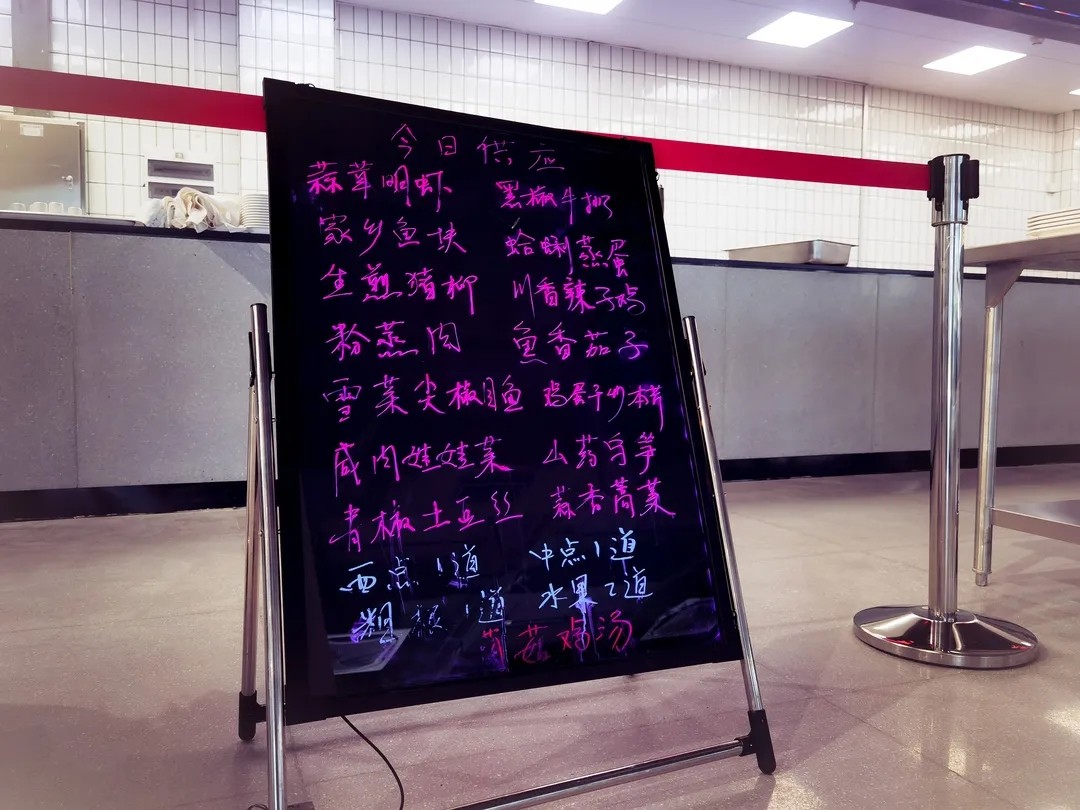 今日供应
蒜茸明虾 黑椒牛排
家乡鱼块 蛤蜊蒸蛋
生煎猪柳 川香辣子鸡
粉蒸肉 鱼香茄子
雪菜尖椒目鱼 鸡蛋干炒本芹
咸肉娃娃菜 山药乌笋
青椒土豆丝 蒜香蒿菜
西点1道 中点1道
粗粮1道 水果2道
菇鸡汤